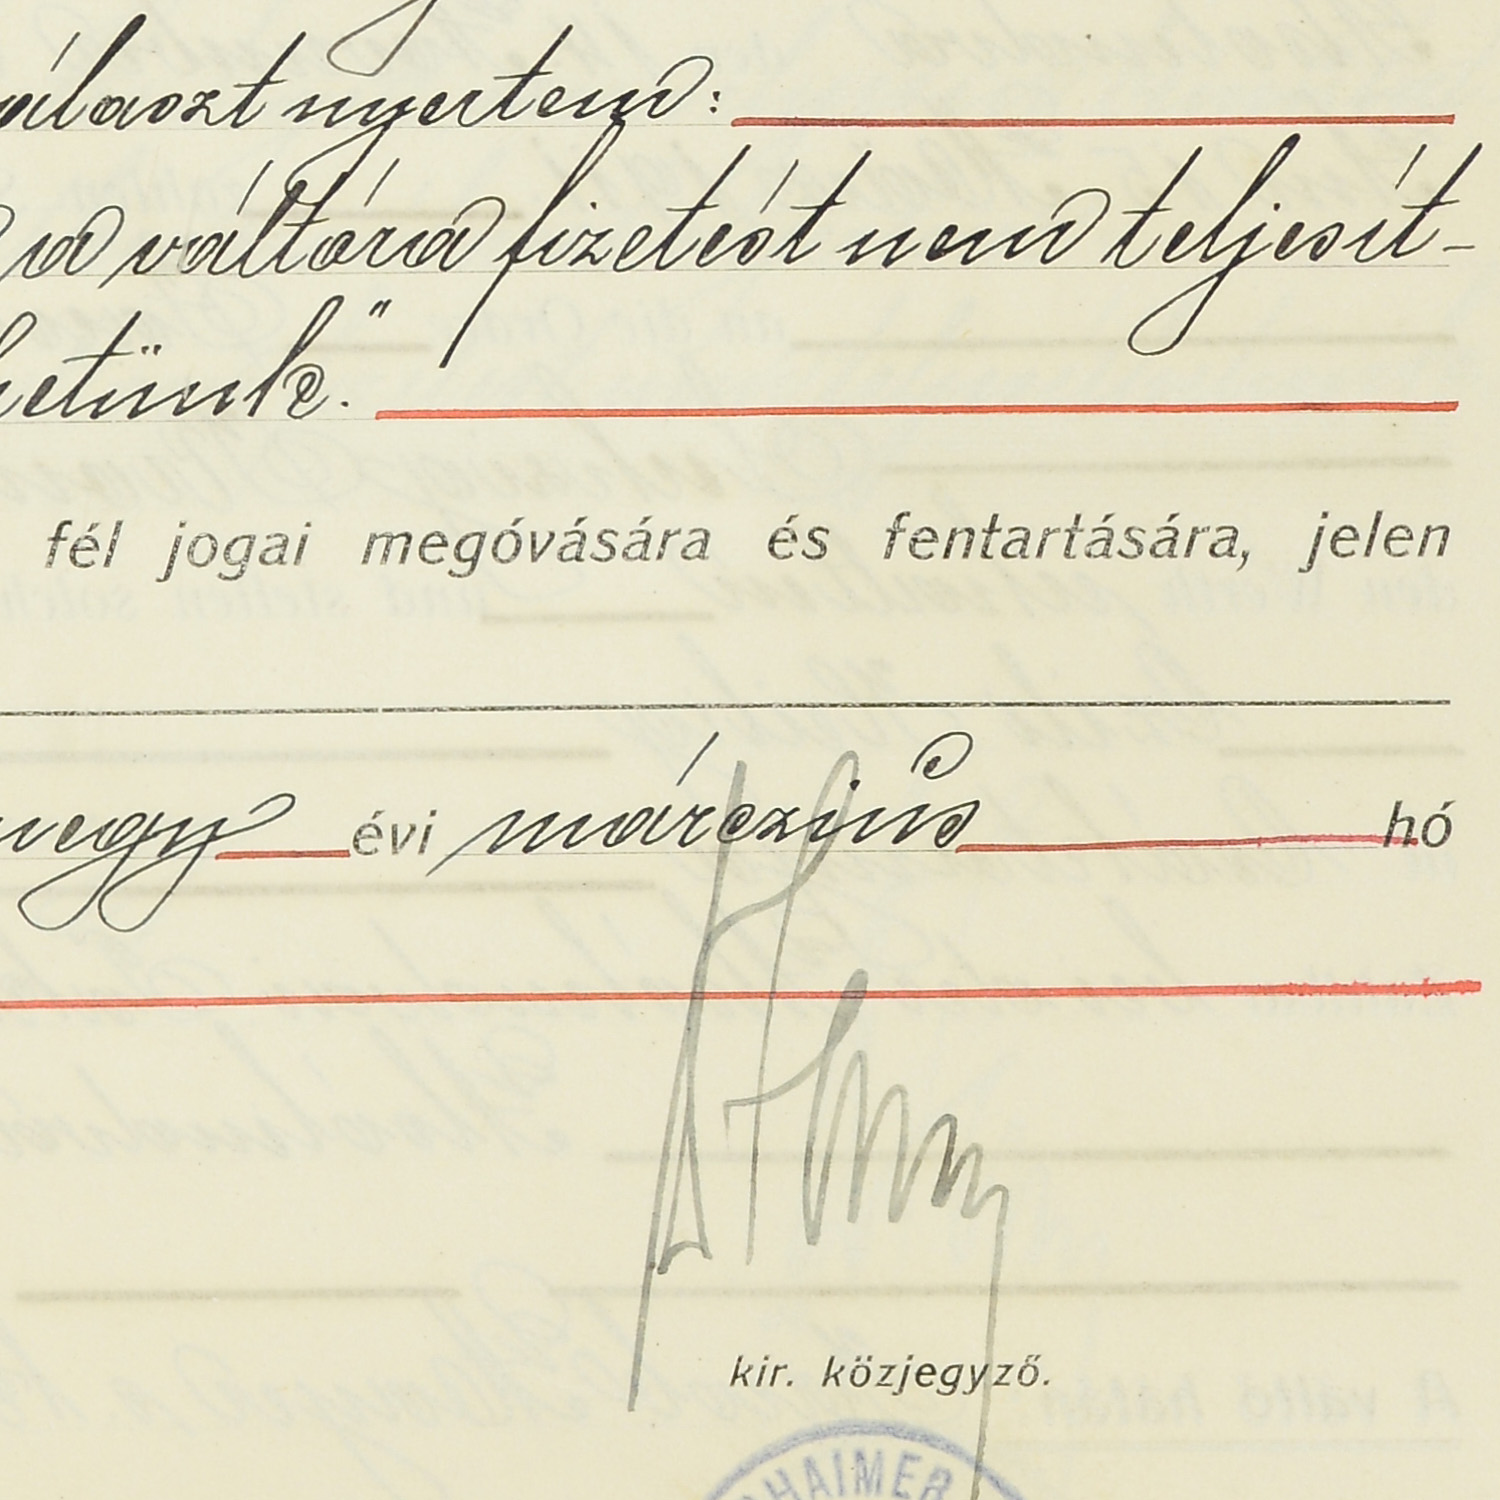 álaszt nyertem:
a váltóra fizetést nem teljesít-
hetünk."
fél jogai megóvására és fentartására, jelen
negy évi márczius hó
kir. közjegyző.
HAIMER